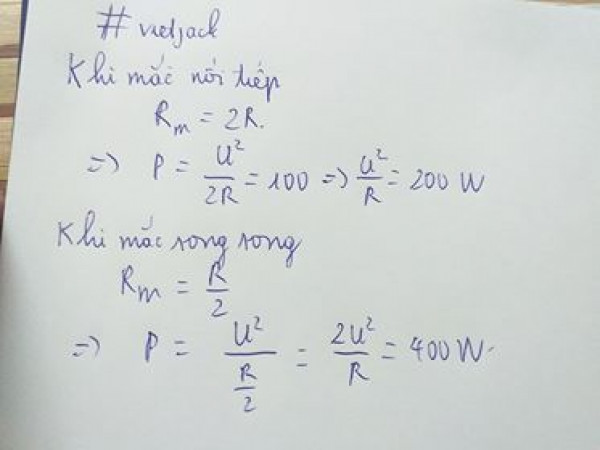 # vietjack
Khi mắc nối tiếp
R_m = 2R.
=> P = U²/2R = 100 => U²/R = 200 W
Khi mắc song song
R_m = R/2
=> P = U²/(R/2) = 2U²/R = 400 W.